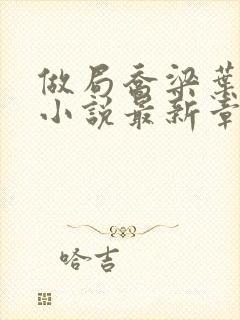 做局乔梁葉
小説最新章
哈吉